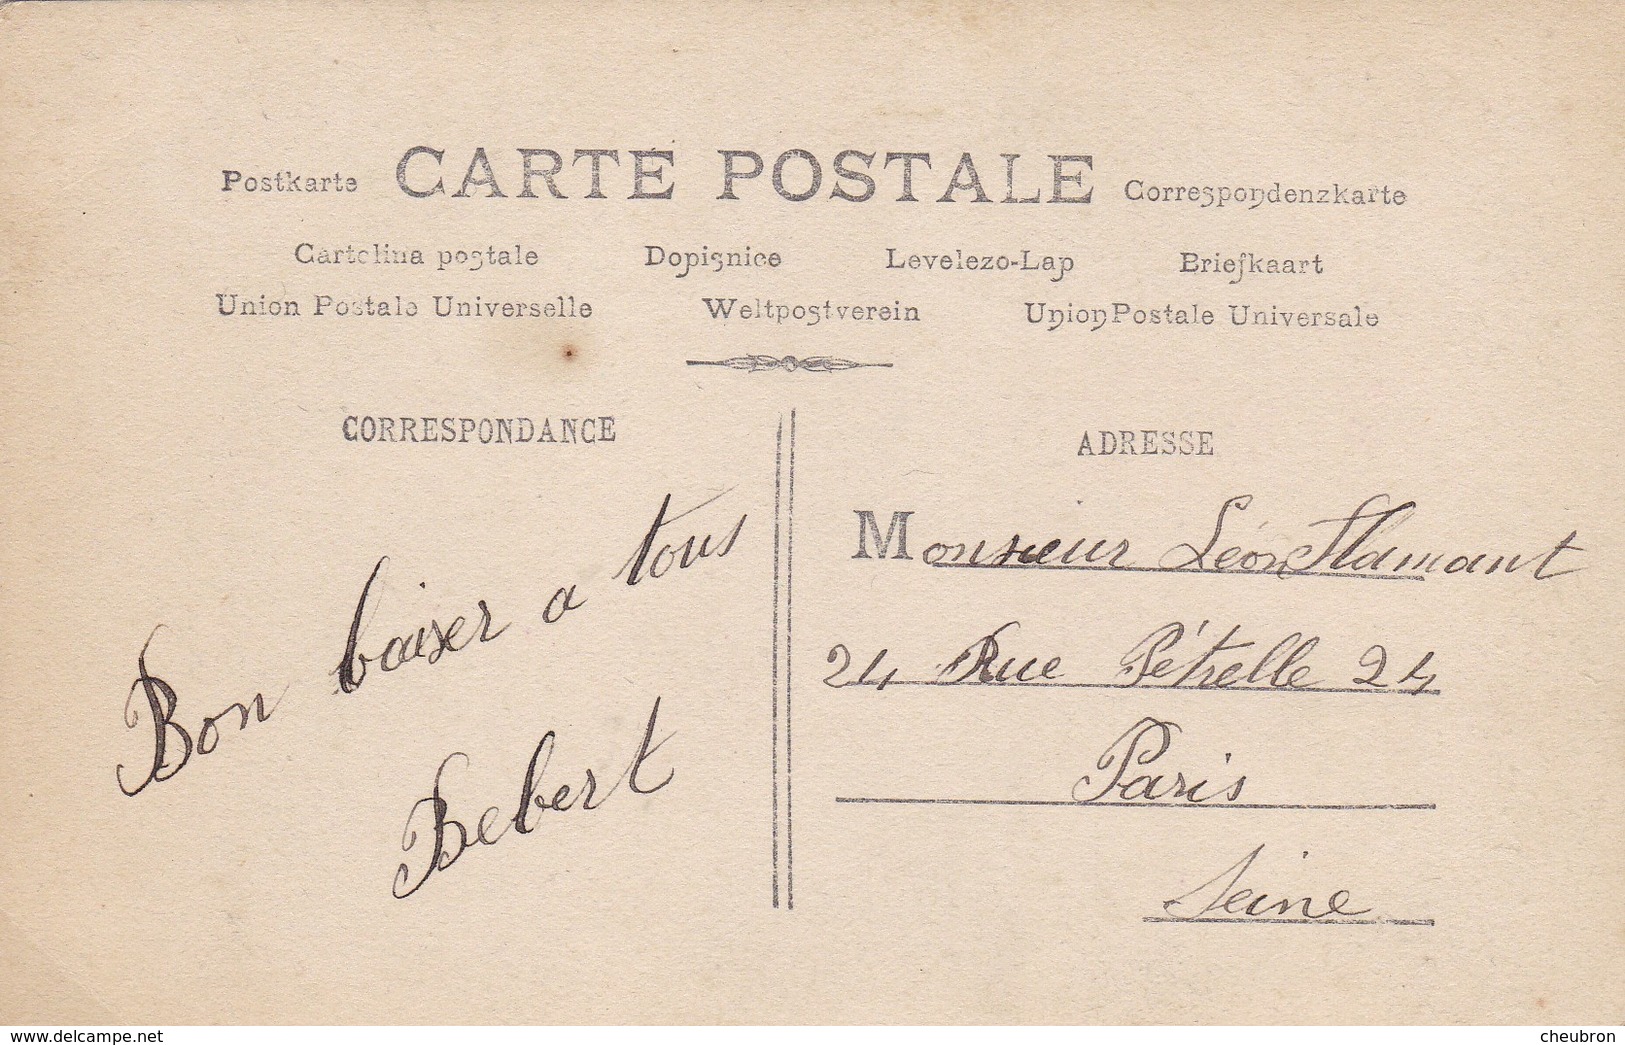 Postkarte CARTE POSTALE Correspondenzkarte
Cartolina postale Dopisnice Levelezo-Lap Briefkaart
Union Postale Universelle Weltpostverein Union Postale Universale
CORRESPONDANCE
Bon baiser a tous
Bebert
ADRESSE
Monsieur Léon Flamant
24 Rue Pétrelle 24
Paris
Seine
delcampe.net
cheubron